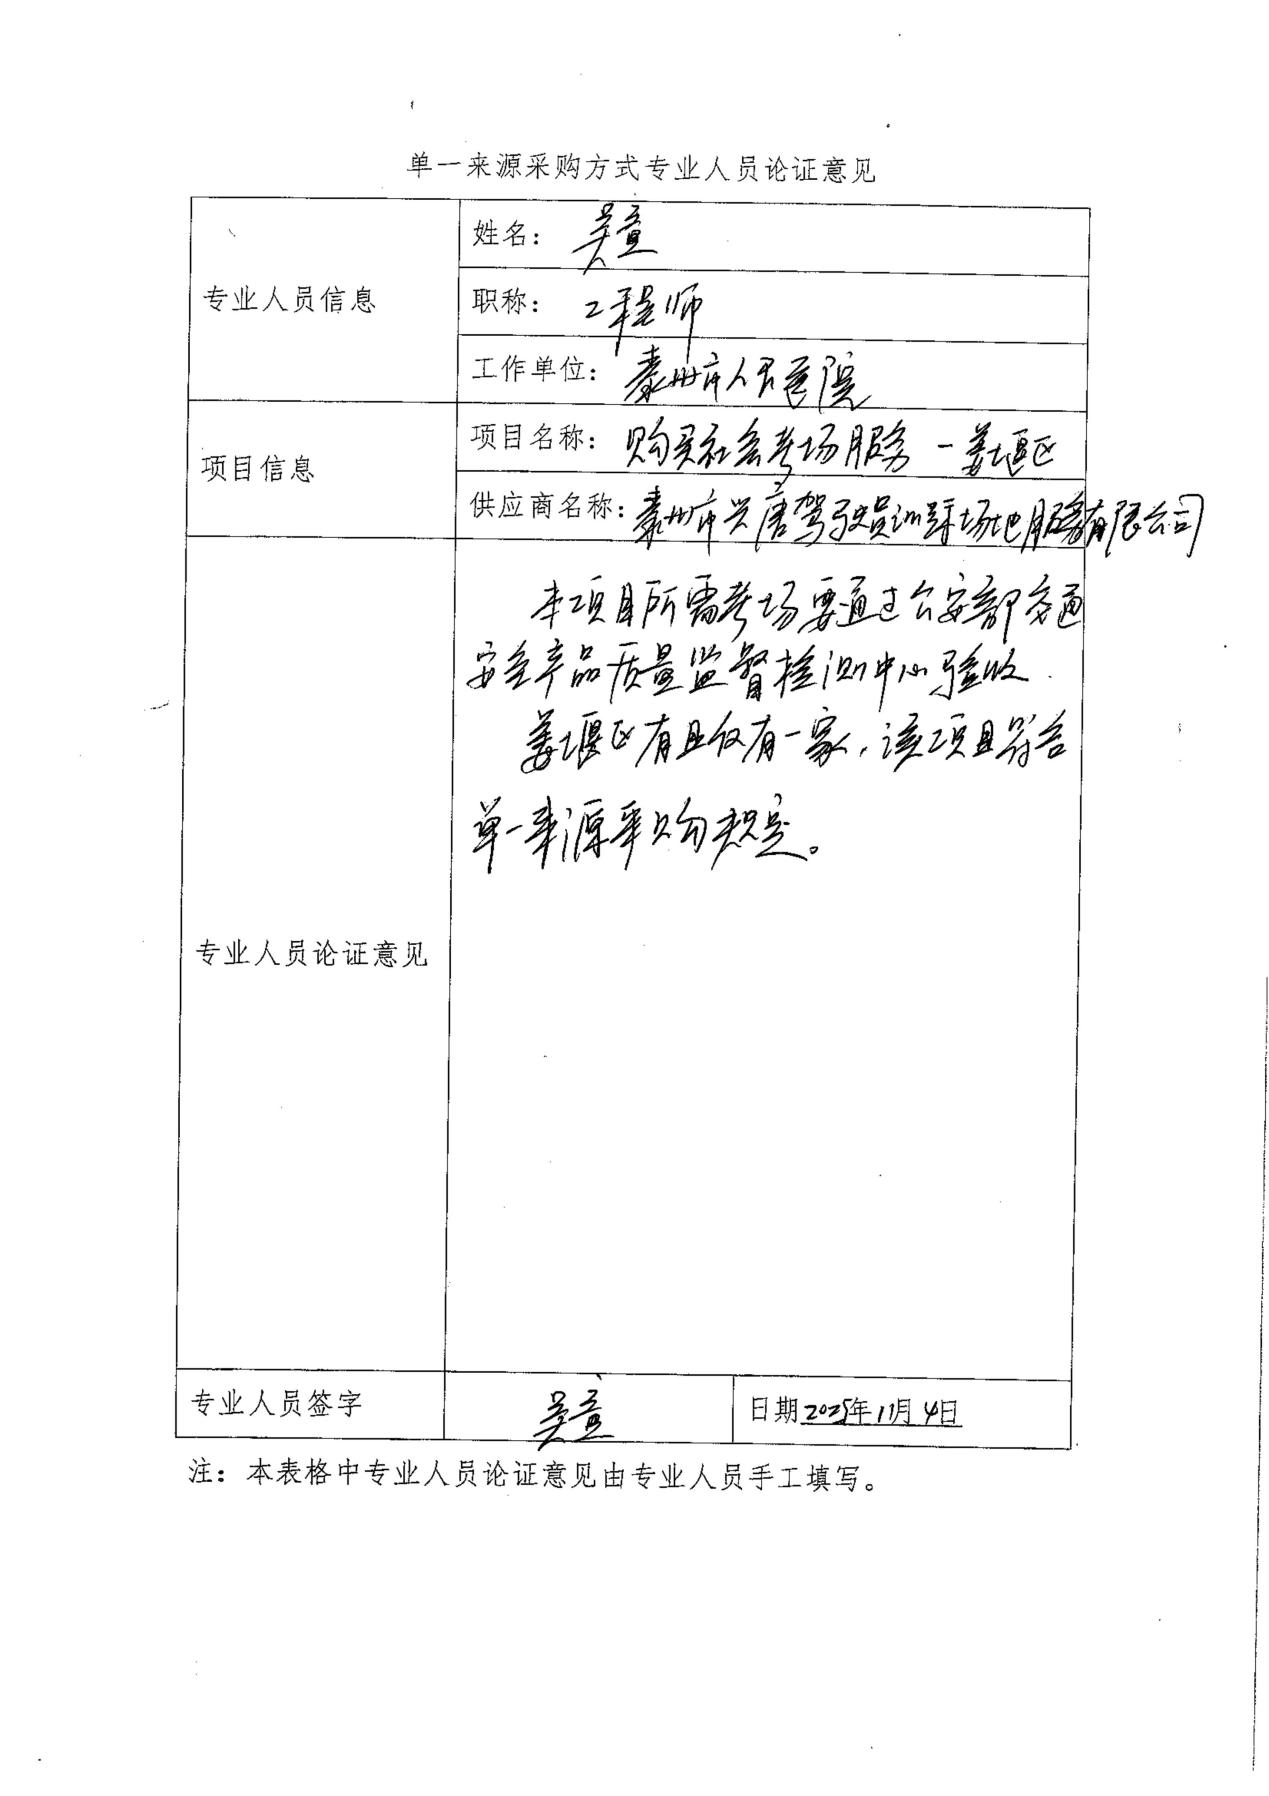 单一来源采购方式专业人员论证意见
专业人员信息
姓名： 吴
职称： 工程师
工作单位： 泰州市人民医院
项目信息
项目名称： 购买社会考场服务－姜堰区
供应商名称： 泰州市兴唐驾驶员训练场地服务有限公司
专业人员论证意见
本项目所需考场要通过公安部交通
安全产品质量监督检测中心验收.
姜堰区有且仅有一家，该项目符合
单一来源采购规定。
专业人员签字 吴 日期2025年11月4日
注：本表格中专业人员论证意见由专业人员手工填写。